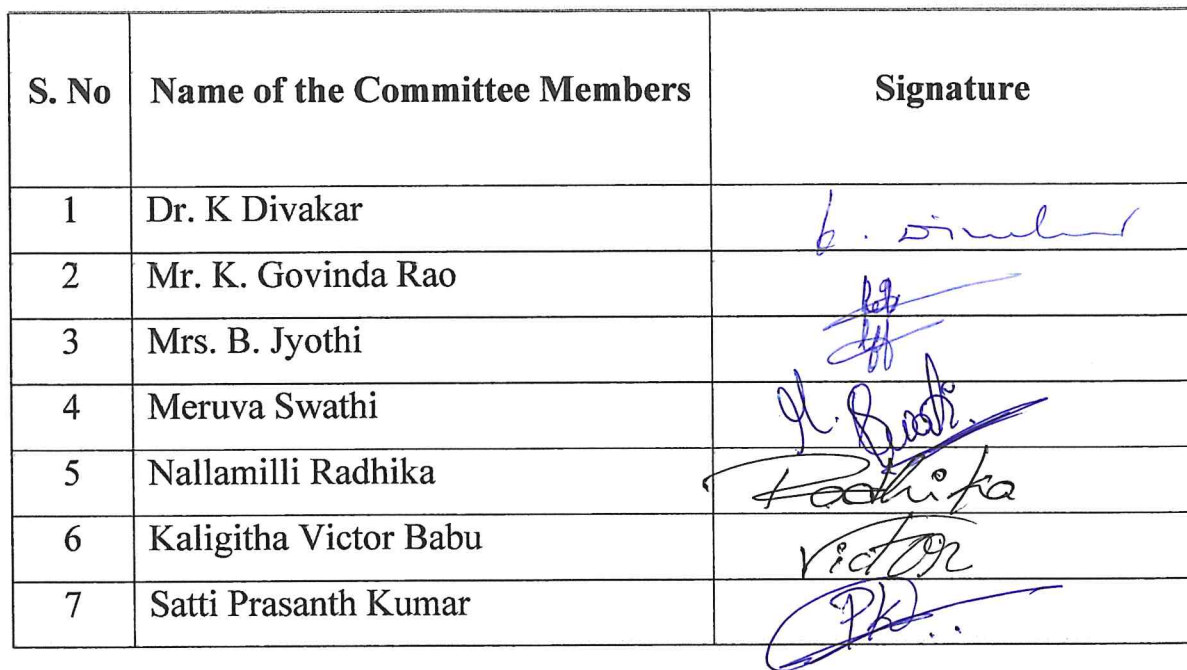 S. No Name of the Committee Members Signature
1 Dr. K Divakar
2 Mr. K. Govinda Rao
3 Mrs. B. Jyothi
4 Meruva Swathi
5 Nallamilli Radhika Radhika
6 Kaligitha Victor Babu Victor
7 Satti Prasanth Kumar